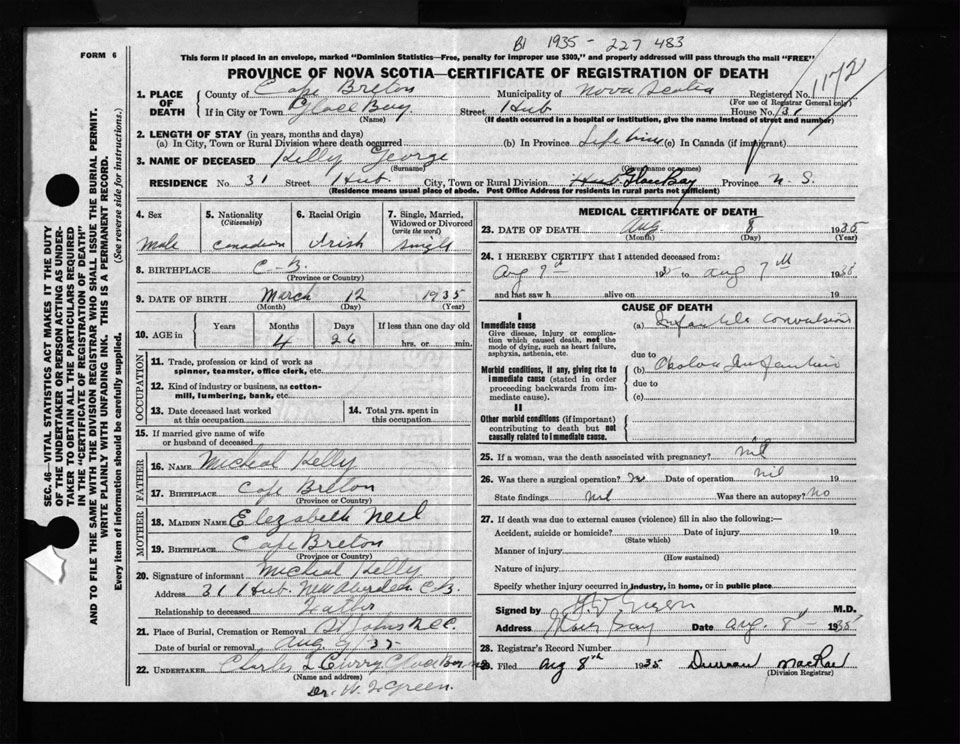 B1 1935 - 227 483
FORM 6
1172
This form if placed in an envelope, marked "Dominion Statistics—Free, penalty for improper use $300," and properly addressed will pass through the mail "FREE"
PROVINCE OF NOVA SCOTIA—CERTIFICATE OF REGISTRATION OF DEATH
1. PLACE OF DEATH County of Cape Breton Municipality of Nova Scotia Registered No.
(For use of Registrar General only)
If in City or Town Glace Bay Street Hub House No. 31
(Name) (If death occurred in a hospital or institution, give the name instead of street and number)
2. LENGTH OF STAY (in years, months and days)
(a) In City, Town or Rural Division where death occurred (b) In Province Life time (c) In Canada (if immigrant)
3. NAME OF DECEASED Kelly George
(Surname) (Given name or names)
RESIDENCE No. 31 Street Hub City, Town or Rural Division Hub Glace Bay Province N.S.
(Residence means usual place of abode. Post Office Address for residents in rural parts not sufficient)
SEC. 46—VITAL STATISTICS ACT MAKES IT THE DUTY
OF THE UNDERTAKER OR PERSON ACTING AS UNDER-
TAKER TO OBTAIN ALL THE PARTICULARS REQUIRED
IN THE "CERTIFICATE OF REGISTRATION OF DEATH"
AND TO FILE THE SAME WITH THE DIVISION REGISTRAR WHO SHALL ISSUE THE BURIAL PERMIT.
WRITE PLAINLY WITH UNFADING INK. THIS IS A PERMANENT RECORD.
Every item of information should be carefully supplied. (See reverse side for instructions.)
4. Sex 5. Nationality (Citizenship) 6. Racial Origin 7. Single, Married, Widowed or Divorced (write the word)
Male Canadian Irish Single
8. BIRTHPLACE C-B.
(Province or Country)
9. DATE OF BIRTH March 12 1935
(Month) (Day) (Year)
10. AGE in Years Months Days If less than one day old
4 26 hrs. or min.
OCCUPATION
11. Trade, profession or kind of work as
spinner, teamster, office clerk, etc.
12. Kind of industry or business, as cotton-
mill, lumbering, bank, etc.
13. Date deceased last worked
at this occupation
14. Total yrs. spent in
this occupation
15. If married give name of wife
or husband of deceased
FATHER
16. NAME Micheal Kelly
17. BIRTHPLACE Cape Breton
(Province or Country)
MOTHER
18. MAIDEN NAME Elezabeth Neil
19. BIRTHPLACE Cape Breton
(Province or Country)
20. Signature of informant Micheal Kelly
Address 31 Hub. New Aberdeen C-B.
Relationship to deceased Father
21. Place of Burial, Cremation or Removal St Johns
Date of burial or removal Aug 9 35
22. UNDERTAKER Charles Curry Glace Bay
(Name and address)
Dr. W. Green.
MEDICAL CERTIFICATE OF DEATH
23. DATE OF DEATH Aug. 8 1935
(Month) (Day) (Year)
24. I HEREBY CERTIFY that I attended deceased from:
Aug to Aug 7th 1935
and last saw h alive on 19
CAUSE OF DEATH
I
Immediate cause
Give disease, injury or complica-
tion which caused death, not the
mode of dying, such as heart failure,
asphyxia, asthenia, etc.
(a) Infantile Convulsions
due to
Morbid conditions, if any, giving rise to
immediate cause (stated in order
proceeding backwards from im-
mediate cause).
(b)
due to
(c)
II
Other morbid conditions (if important)
contributing to death but not
causally related to immediate cause.
25. If a woman, was the death associated with pregnancy? nil
26. Was there a surgical operation? Date of operation nil 19
State findings nil Was there an autopsy? No
27. If death was due to external causes (violence) fill in also the following:—
Accident, suicide or homicide? Date of injury 19
(State which)
Manner of injury
(How sustained)
Nature of injury
Specify whether injury occurred in industry, in home, or in public place
Signed by Green M.D.
Address Glace Bay Date Aug. 8th 1935
28. Registrar's Record Number
29. Filed Aug 8th 1935 Duncan MacRae
(Division Registrar)